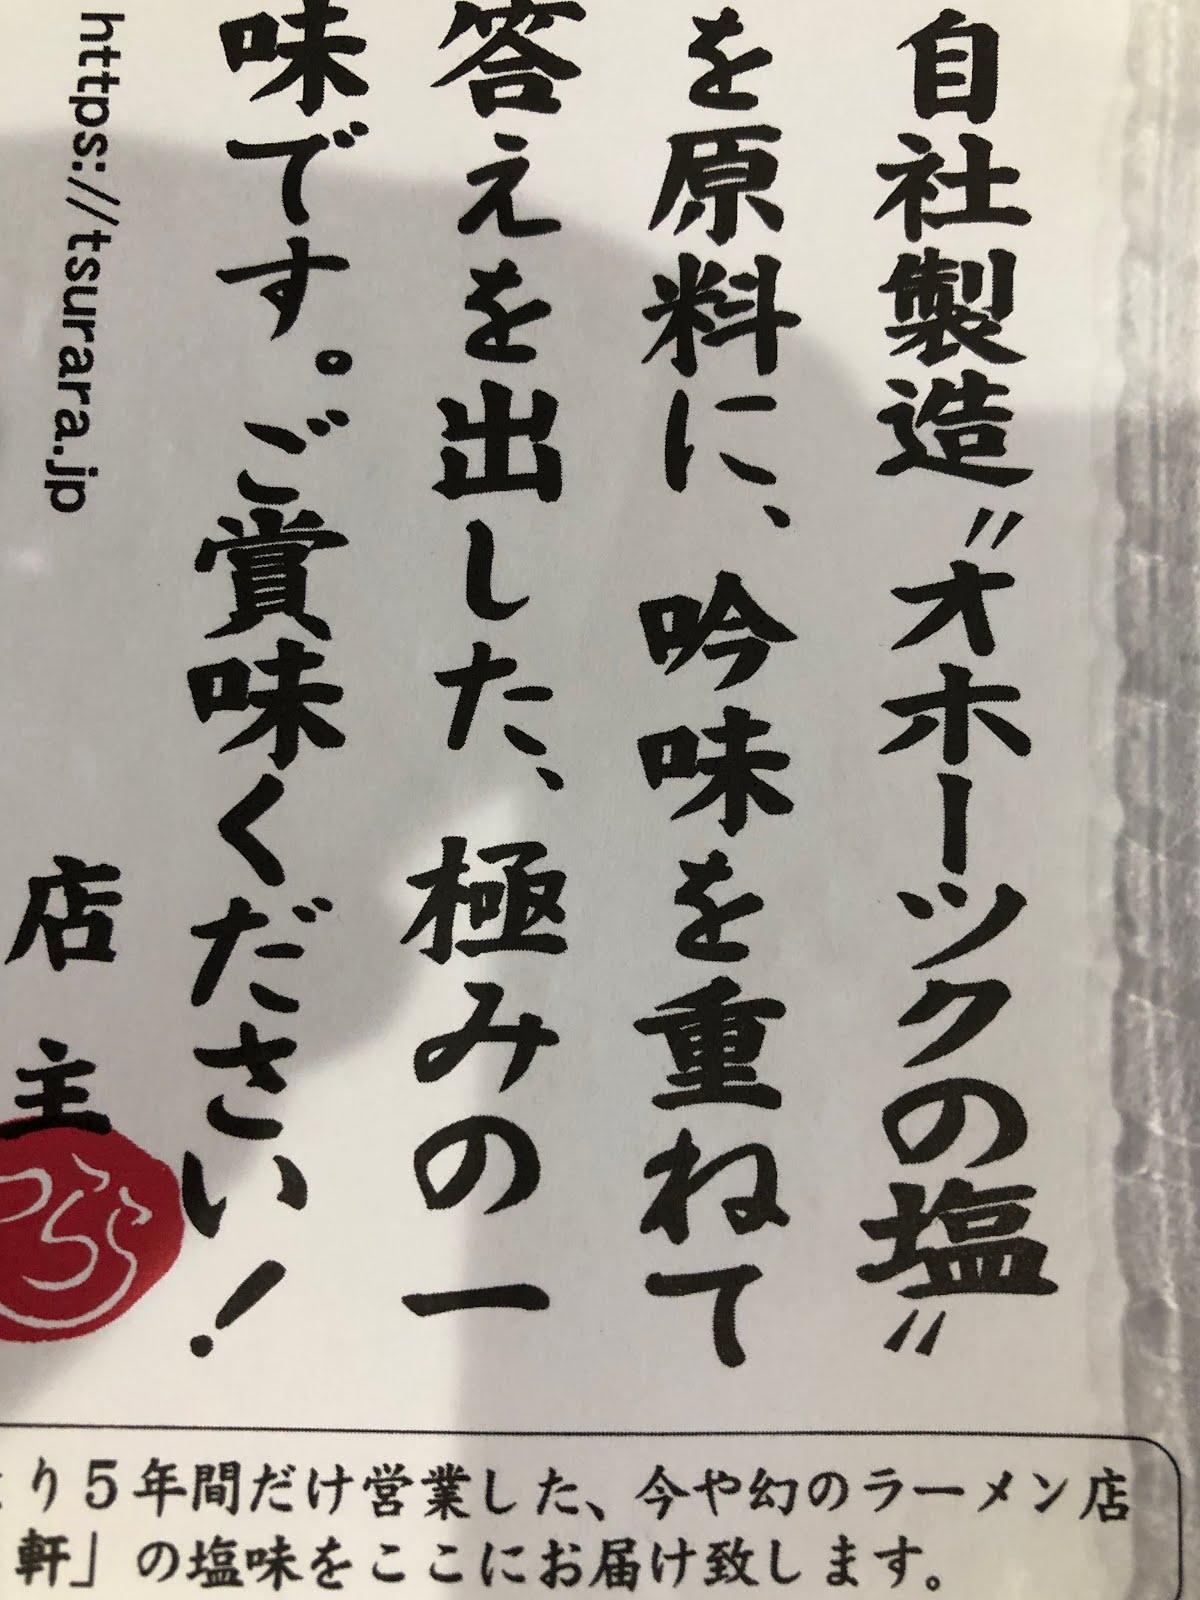 自社製造〝オホーツクの塩〟
を原料に、吟味を重ねて
答えを出した、極みの一
味です。ご賞味ください!
https://tsurara.jp
店主
つらら
り5年間だけ営業した、今や幻のラーメン店
軒」の塩味をここにお届け致します。